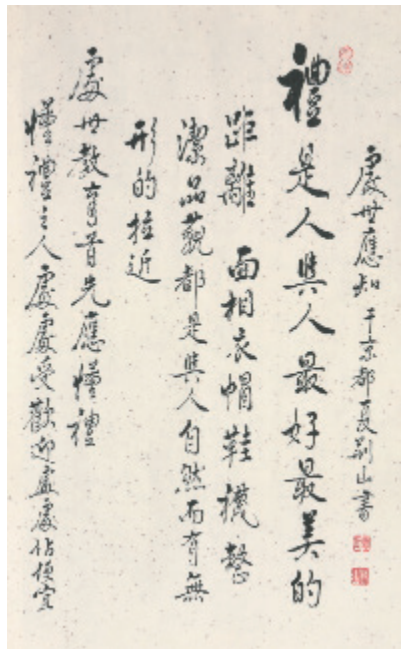 處世應知 于京都夏荊山書
禮是人與人最好最美的
距離 面相衣帽鞋襪整
潔品觀都是與人自然而有無
形的拉近
處世教育首先應懂禮
懂禮之人處處受歡迎處處佔便宜